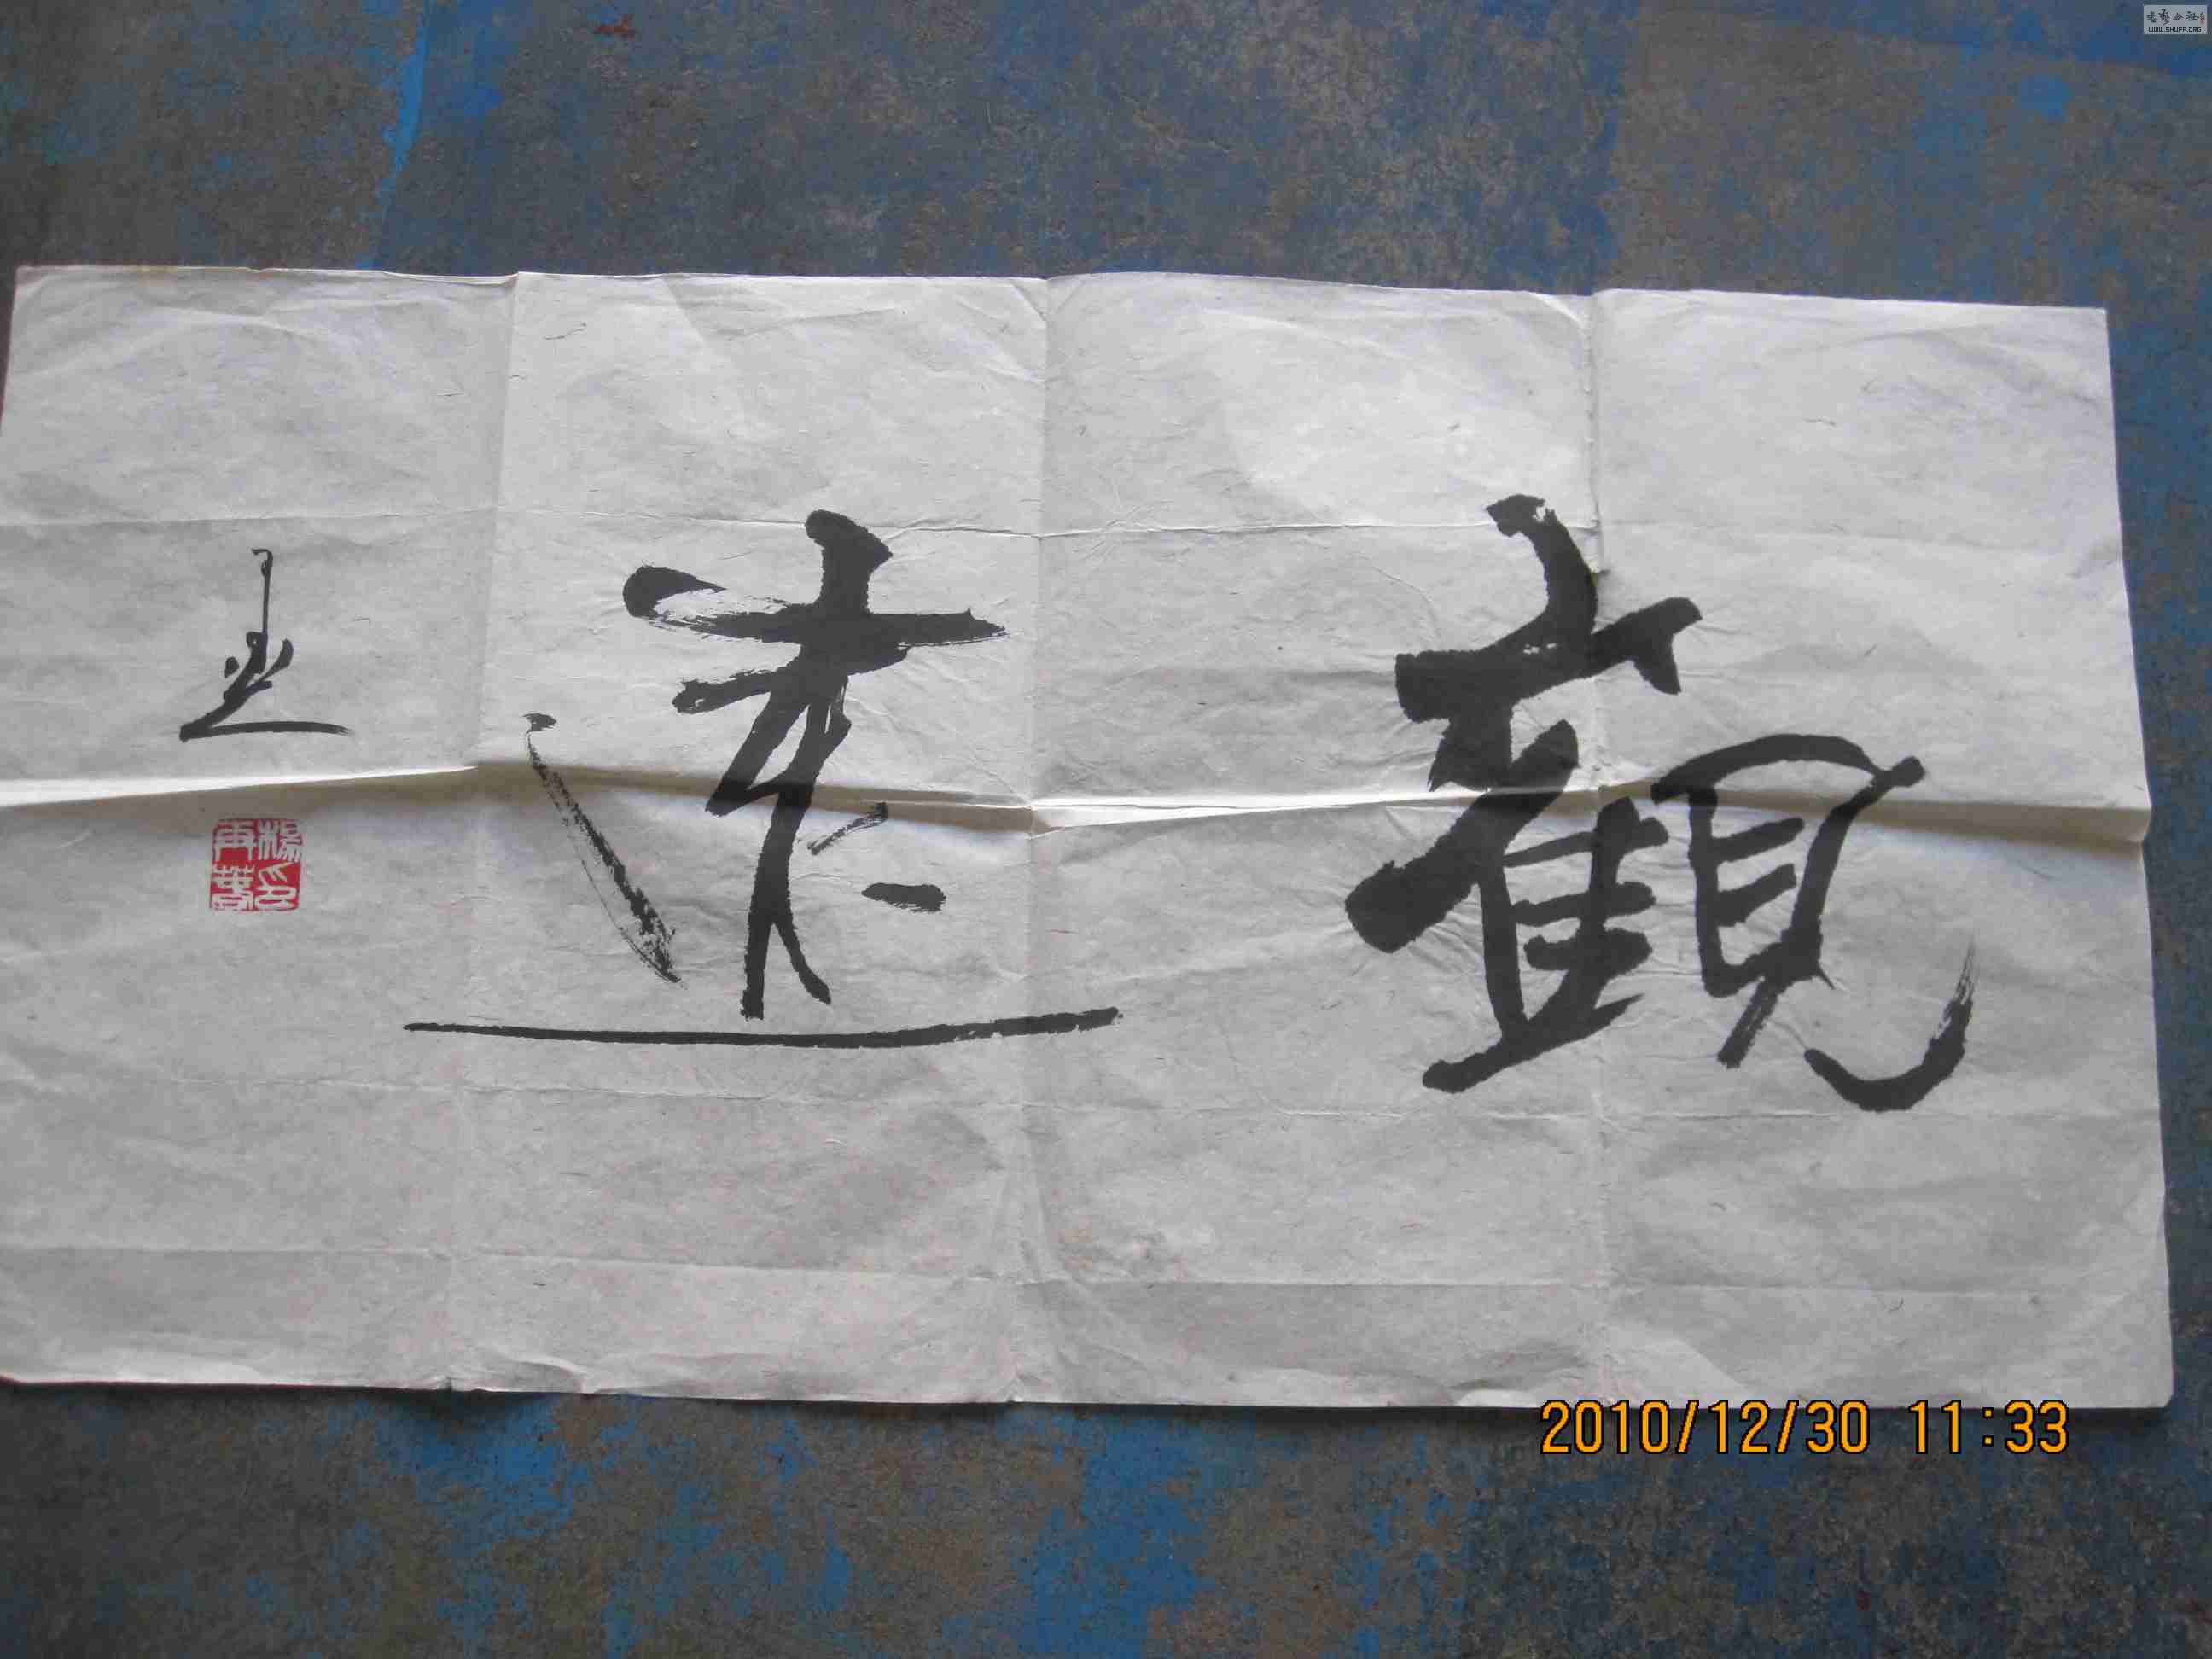 觀遠
楊再春印
2010/12/30 11:33
書藝公社
WWW.SHUFA.ORG